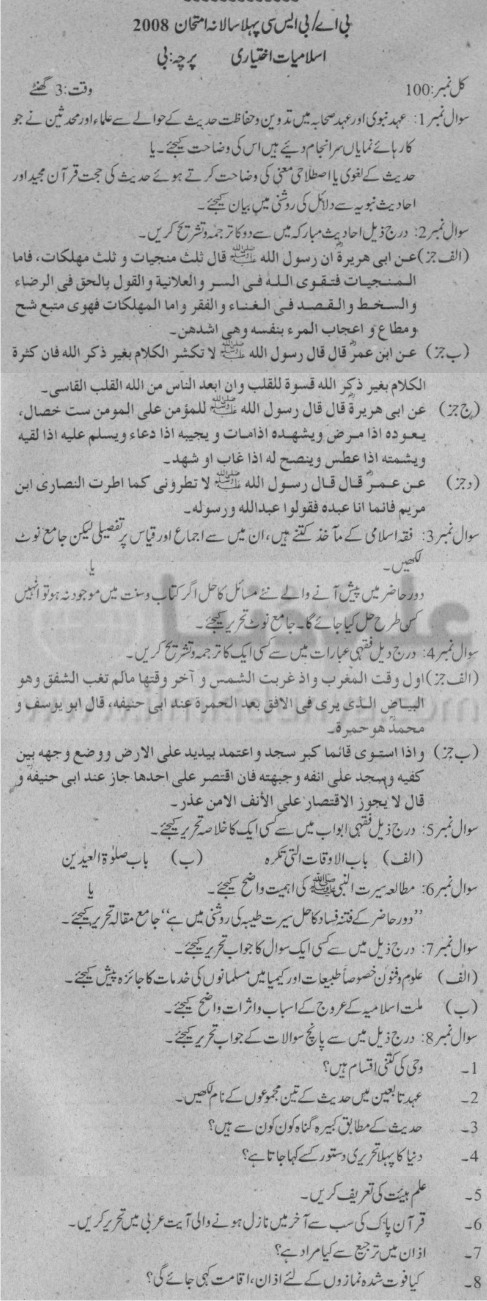 بی اے/بی ایس سی پہلا سالانہ امتحان 2008
اسلامیات اختیاری پرچہ: بی
کل نمبر: 100 وقت: 3 گھنٹے
سوال نمبر 1: عہد نبوی اور عہد صحابہ میں تدوین و حفاظت حدیث کے حوالے سے علماء اور محدثین نے جو
کارہائے نمایاں سرانجام دیئے ہیں اس کی وضاحت کیجئے۔ یا
حدیث کے لغوی یا اصطلاحی معنی کی وضاحت کرتے ہوئے حدیث کی حجت قرآن مجید اور
احادیث نبویہ سے دلائل کی روشنی میں بیان کیجئے۔
سوال نمبر 2: درج ذیل احادیث مبارکہ میں سے دو کا ترجمہ و تشریح کریں۔
(الف جز) عن ابی هریرةؓ ان رسول الله ﷺ قال ثلث منجیات و ثلث مهلکات، فاما
المنجیات فتقوی الله فی السر والعلانیة والقول بالحق فی الرضاء
والسخط والقصد فی الغناء والفقر واما المهلکات فهوی متبع شح
ومطاع و اعجاب المرء بنفسه وهی اشدهن۔
(ب جز) عن ابن عمرؓ قال قال رسول الله ﷺ لا تکشر الکلام بغیر ذکر الله فان کثرة
الکلام بغیر ذکر الله قسوة للقلب وان ابعد الناس من الله القلب القاسی۔
(ج جز) عن ابی هریرةؓ قال قال رسول الله ﷺ للمؤمن علی المومن ست خصال،
یعوده اذا مرض ویشهده اذامات و یجیبه اذا دعاء ویسلم علیه اذا لقیه
ویشمته اذا عطس وینصح له اذا غاب او شهد۔
(د جز) عن عمرؓ قال قال رسول الله ﷺ لا تطرونی کما اطرت النصاری ابن
مریم فائما انا عبده فقولوا عبدالله ورسوله۔
سوال نمبر 3: فقہ اسلامی کے مآخذ کتنے ہیں، ان میں سے اجماع اور قیاس پر تفصیلی لیکن جامع نوٹ
لکھیں۔ یا
دور حاضر میں پیش آنے والے نئے مسائل کا حل اگر کتاب و سنت میں موجود نہ ہو تو انہیں
کس طرح حل کیا جائے گا۔ جامع نوٹ تحریر کیجئے۔
سوال نمبر 4: درج ذیل فقہی عبارات میں سے کسی ایک کا ترجمہ و تشریح کریں۔
(الف جز) اول وقت المغرب واذ غربت الشمس و آخر وقتها مالم تغب الشفق وهو
البیاض الذی یری فی الافق بعد الحمرة عند ابی حنیفه، قال ابو یوسف و
محمد هو حمرة۔
(ب جز) واذا استوی قائما کبر سجد واعتمد بیدید علی الارض ووضع وجهه بین
کفیه وسجد علی انفه وجبهته فان اقتصر علی احدها جاز عند ابی حنیفه و
قال لا یجوز الاقتصار علی الأنف الامن عذر۔
سوال نمبر 5: درج ذیل فقہی ابواب میں سے کسی ایک کا خلاصہ تحریر کیجئے۔
(الف) باب الاوقات التی تکرہ (ب) باب صلوٰۃ العیدین
سوال نمبر 6: مطالعہ سیرت النبی ﷺ کی اہمیت واضح کیجئے۔ یا
”دور حاضر کے فتنہ فساد کا حل سیرت طیبہ کی روشنی میں ہے“ جامع مقالہ تحریر کیجئے۔
سوال نمبر 7: درج ذیل میں سے کسی ایک سوال کا جواب تحریر کیجئے۔
(الف) علوم و فنون خصوصاً طبیعات اور کیمیا میں مسلمانوں کی خدمات کا جائزہ پیش کیجئے۔
(ب) ملت اسلامیہ کے عروج کے اسباب و اثرات واضح کیجئے۔
سوال نمبر 8: درج ذیل میں سے پانچ سوالات کے جواب تحریر کیجئے۔
1۔ وحی کی کتنی اقسام ہیں؟
2۔ عہد تابعین میں حدیث کے تین مجموعوں کے نام لکھیں۔
3۔ حدیث کے مطابق کبیرہ گناہ کون کون سے ہیں؟
4۔ دنیا کا پہلا تحریری دستور کسے کہا جاتا ہے؟
5۔ علم ہیئت کی تعریف کریں۔
6۔ قرآن پاک کی سب سے آخر میں نازل ہونے والی آیت عربی میں تحریر کریں۔
7۔ اذان میں ترجیع سے کیا مراد ہے؟
8۔ کیا فوت شدہ نمازوں کے لئے اذان، اقامت کہی جائے گی؟